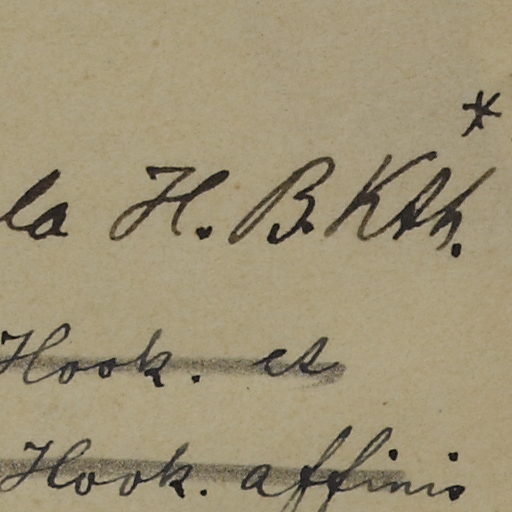 la H. B. Kth. *
Hook. et
Hook. affinis